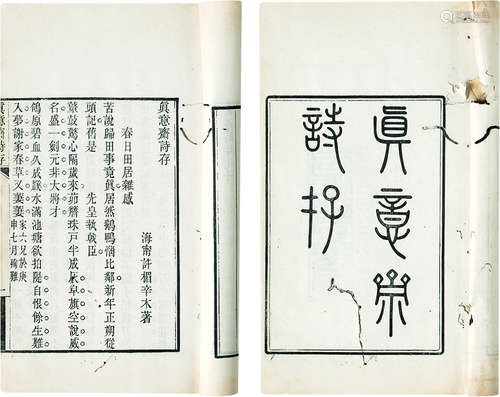 眞意齋
詩存
眞意齋詩存
海甯許楣辛木著
春日田居雜感
苦說歸田事竟眞居然鵝鴨惱比鄰新年正朔從
頭記舊是　先皇執戟臣
鼓驚心隔歲來茆簷珠戶半成灰阜旗空說威
名盛一劍元非大將才
鴒原碧血久成谿水滿池塘欲拍隄自恨餘生難
入夢謝家春草又萋萋家六兄於庚申七月殉難
眞意齋詩存